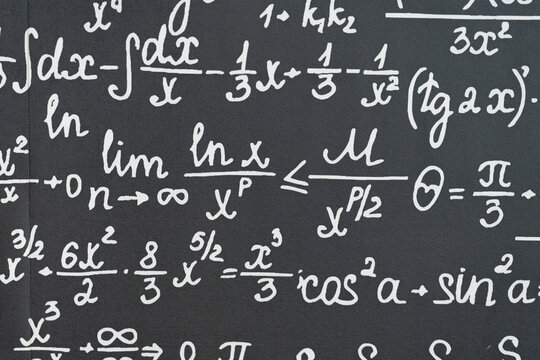 x⁴ 1+k₁k₂ 3x²
∫dx-∫dx/x-1/3x+1/3-1/x² (tg2x)'·
ln
x²/x+0 lim n→∞ ln x/xᴾ ≤ M/x^P/2 Θ=π/3+
x^3/2·6x²/2·8/3x^5/2=x³/3 cos²a+sin²a=
x³ +∞ ⇒ π